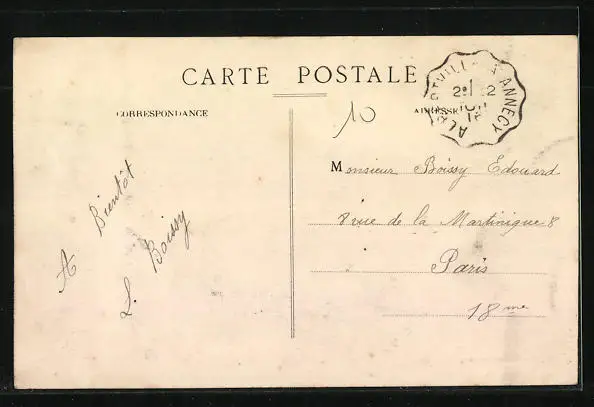 CARTE POSTALE
CORRESPONDANCE
ADRESSE
10
ALBERTVILLE À ANNECY
A Bientôt
L. Boissy
Monsieur Boissy Edouard
8 rue de la Martinique 8
Paris
18me